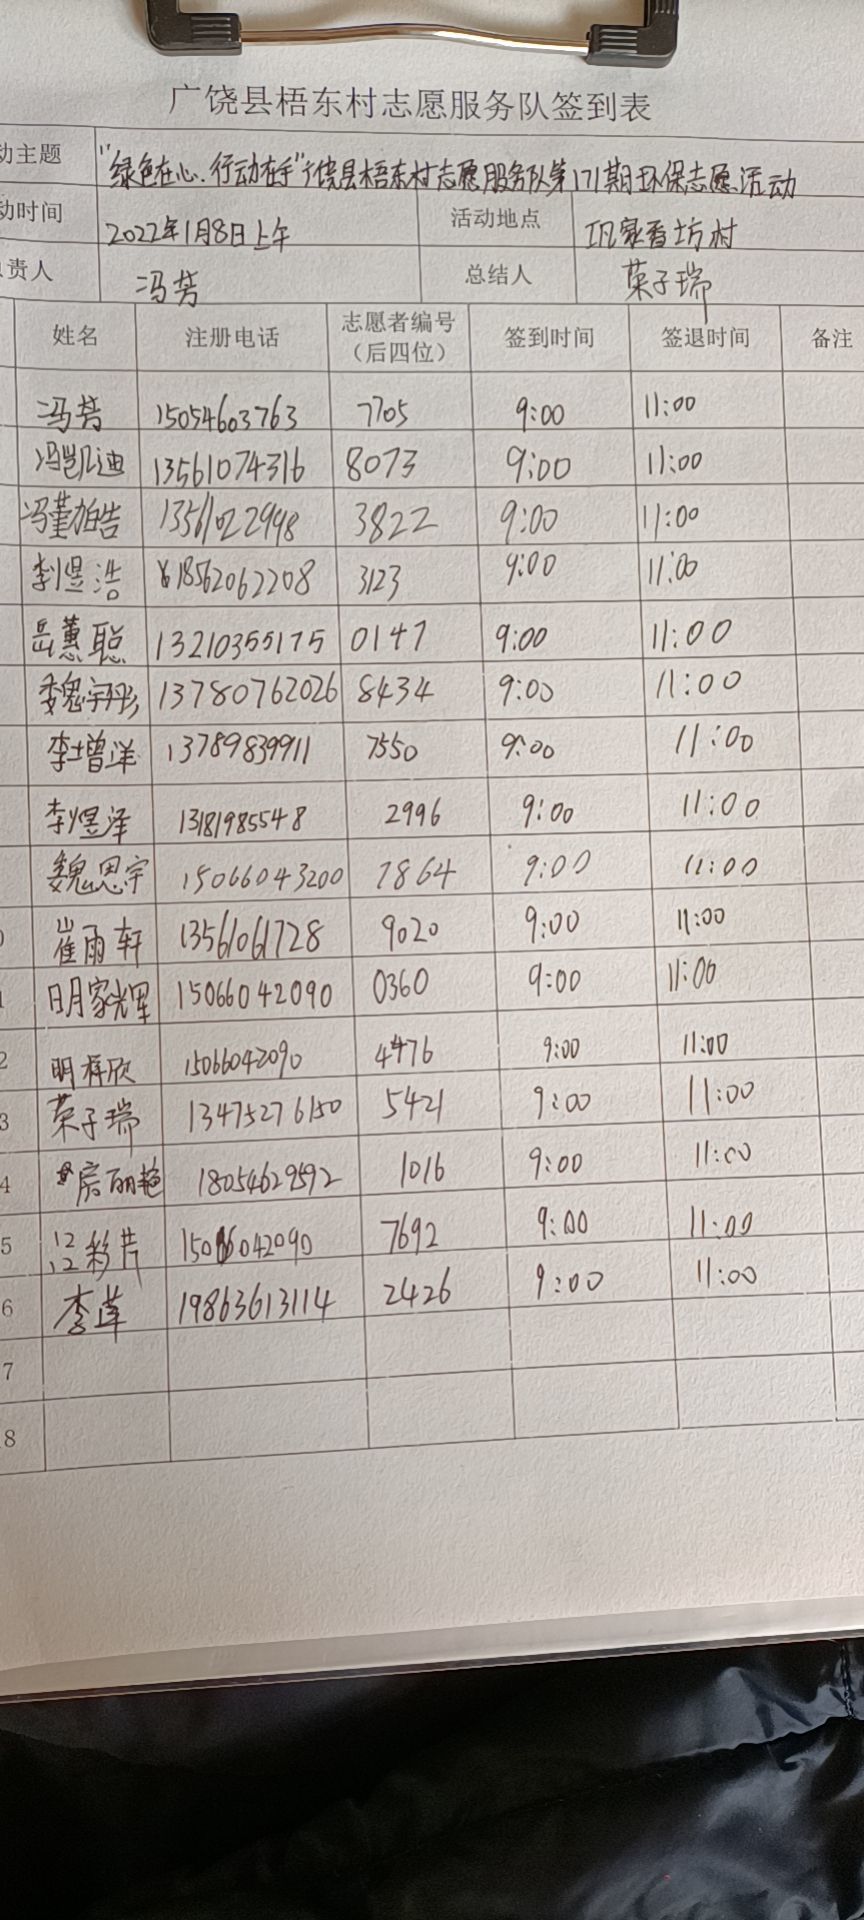 广饶县梧东村志愿服务队签到表
动主题 "绿色在心.行动在手"广饶县梧东村志愿服务队第171期环保志愿活动
动时间 2022年1月8日上午 活动地点 巩家香坊村
责人 冯芳 总结人 荣子瑞
姓名 注册电话 志愿者编号（后四位） 签到时间 签退时间 备注
冯芳 15054603763 7705 9:00 11:00
冯凯迪 13561074316 8073 9:00 11:00
冯堇皓 13561022998 3822 9:00 11:00
李煜浩 18562062208 3123 9:00 11:00
岳蕙聪 13210355175 0147 9:00 11:00
魏宇彤 13780762026 8434 9:00 11:00
李增洋 13789839911 7550 9:00 11:00
李煜泽 13181985548 2996 9:00 11:00
魏思宇 15066043200 7864 9:00 11:00
0 崔雨轩 13561061728 9020 9:00 11:00
1 明家辉 15066042090 0360 9:00 11:00
2 明梓欣 15066042090 4476 9:00 11:00
3 荣子瑞 13475276150 5421 9:00 11:00
4 房丽艳 18054629592 1016 9:00 11:00
5 15066042090 7692 9:00 11:00
6 李莲 19863613114 2426 9:00 11:00
7
8